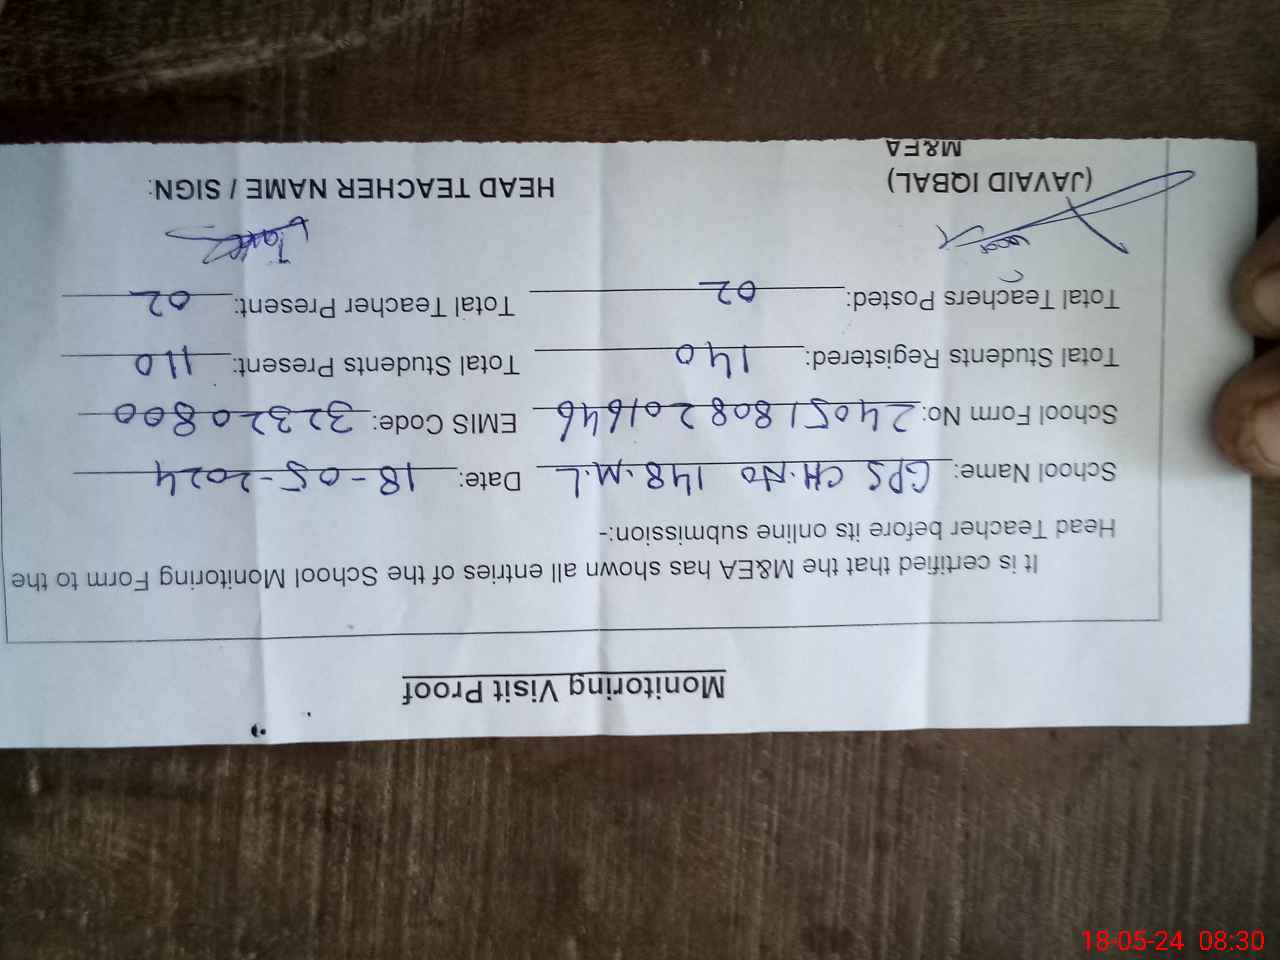 Monitoring Visit Proof
It is certified that the M&EA has shown all entries of the School Monitoring Form to the
Head Teacher before its online submission:-
School Name: GPS CH.No 148.M.L Date: 18-05-2024
School Form No: 240518082 01646 EMIS Code: 32320800
Total Students Registered: 140 Total Students Present: 110
Total Teachers Posted: 02 Total Teacher Present: 02
(JAVAID IQBAL) HEAD TEACHER NAME / SIGN:
M&EA
18-05-24 08:30